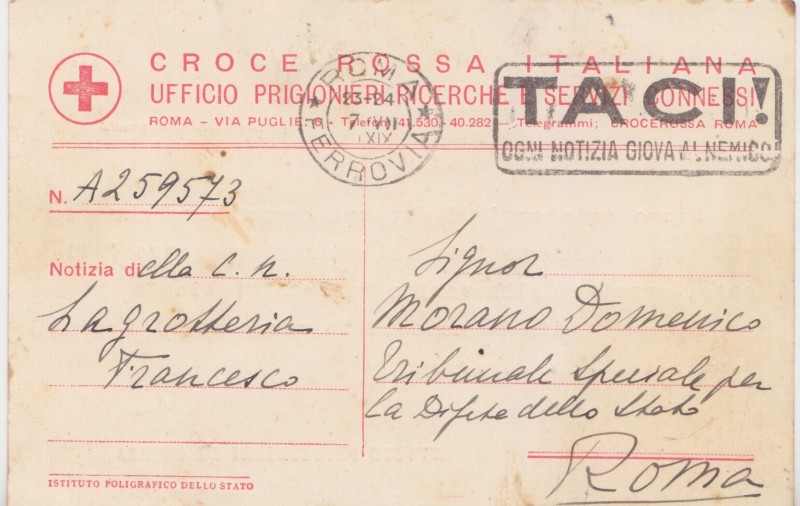 CROCE ROSSA ITALIANA
UFFICIO PRIGIONIERI RICERCHE E SERVIZI CONNESSI
ROMA - VIA PUGLIE, 6 - Telefoni 41.530 - 40.282 - Telegrammi: CROCEROSSA ROMA
ROMA
23-24
7 VII
XIX
FERROVIA
TACI!
OGNI NOTIZIA GIOVA AL NEMICO
N. A259573
Notizia di ella C. N.
Lagrotteria
Francesco
Signor
Morano Domenico
Tribunale Speciale per
la Difesa dello Stato
Roma
ISTITUTO POLIGRAFICO DELLO STATO